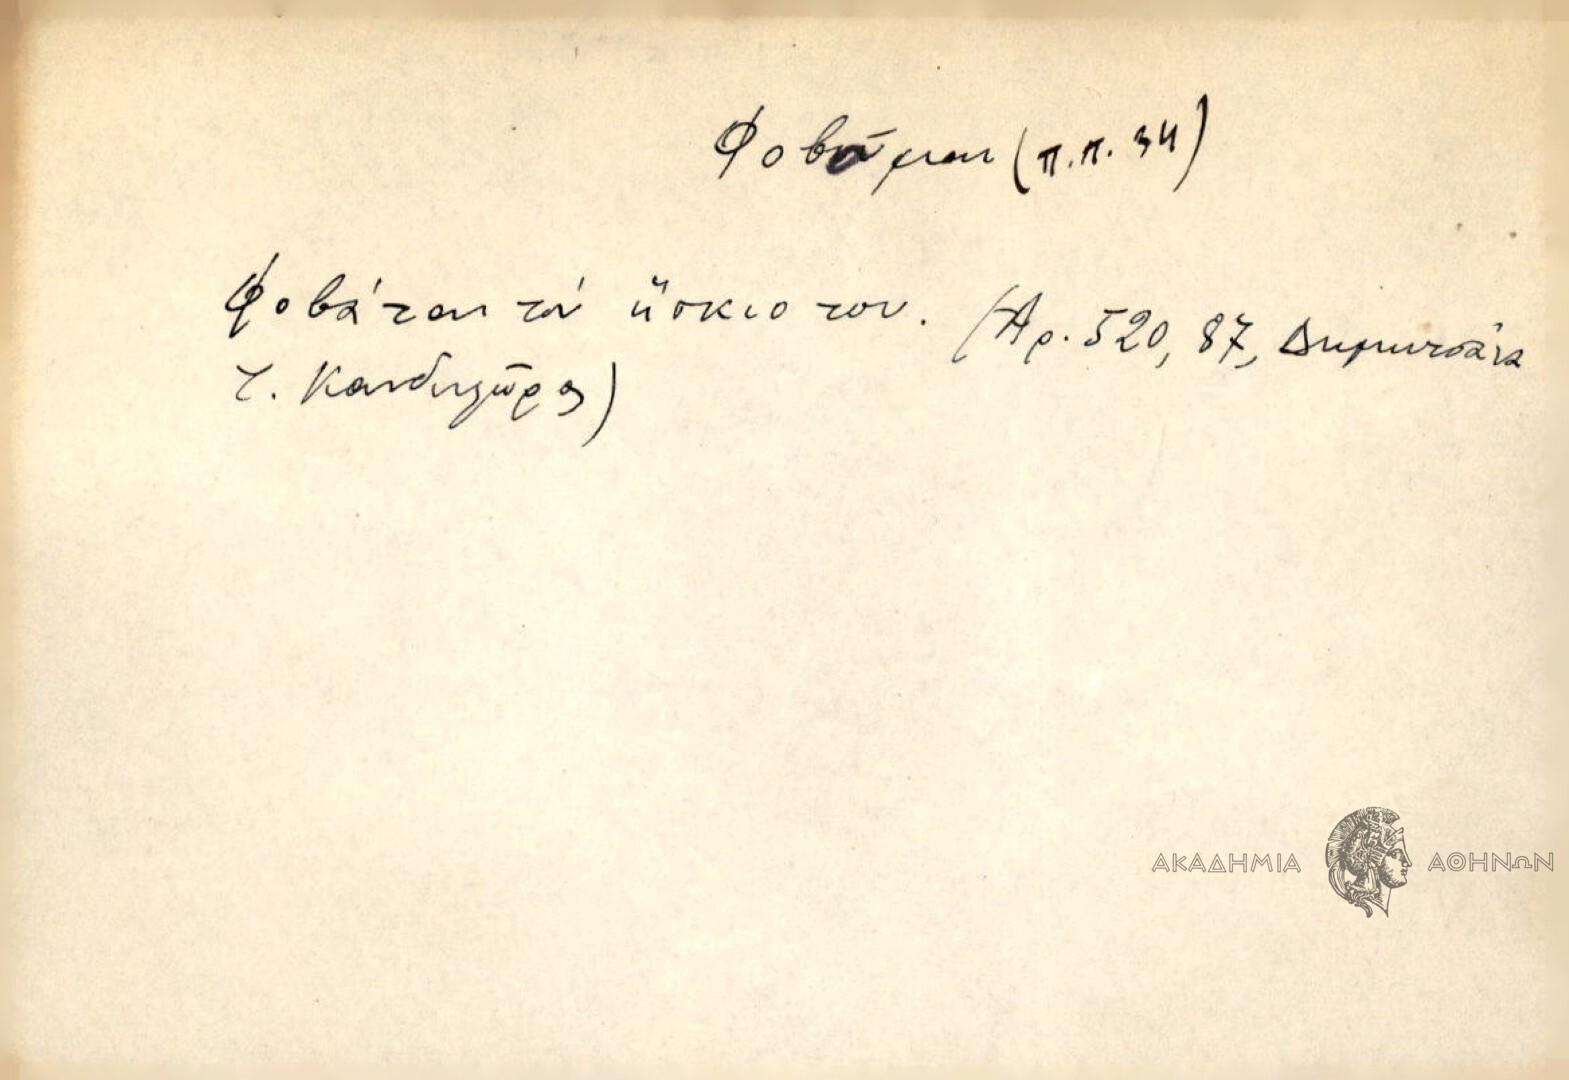 Φοβᾶμαι (π.π. 34)
Φοβάται τὸν ἥσκιο του. (Ἀρ. 520, 87, Δημητσάνα
Τ. Κανδηλῶρος)
ΑΚΑΔΗΜΙΑ ΑΘΗΝΩΝ